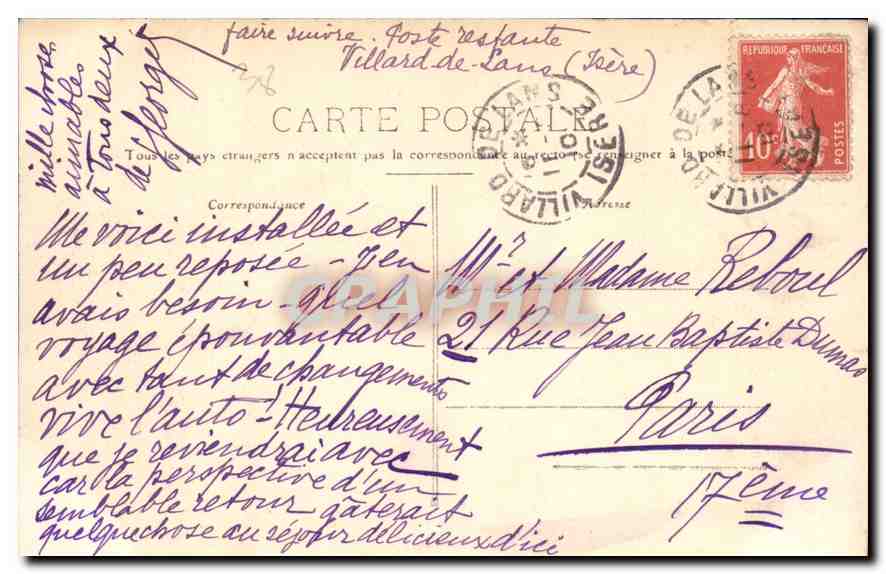 faire suivre. Poste restante
Villard-de-Lans (Isère)
mille choses
aimables
à tous deux
de Georges
378
CARTE POSTALE
Tous les pays étrangers n'acceptent pas la correspondance au recto (se renseigner à la poste)
Correspondance
Adresse
REPUBLIQUE FRANÇAISE
10c
POSTES
VILLARD DE LANS
ISERE
VILLARD DE LANS
ISERE
Me voici installée et
un peu reposée - J'en
avais besoin - quel
voyage épouvantable
avec tant de changements
vive l'auto! Heureusement
que je reviendrai avec
car la perspective d'un
semblable retour gâterait
quelque chose au séjour délicieux d'ici
Mr et Madame Reboul
21 Rue Jean Baptiste Dumas
Paris
17ème
CPAPHIL